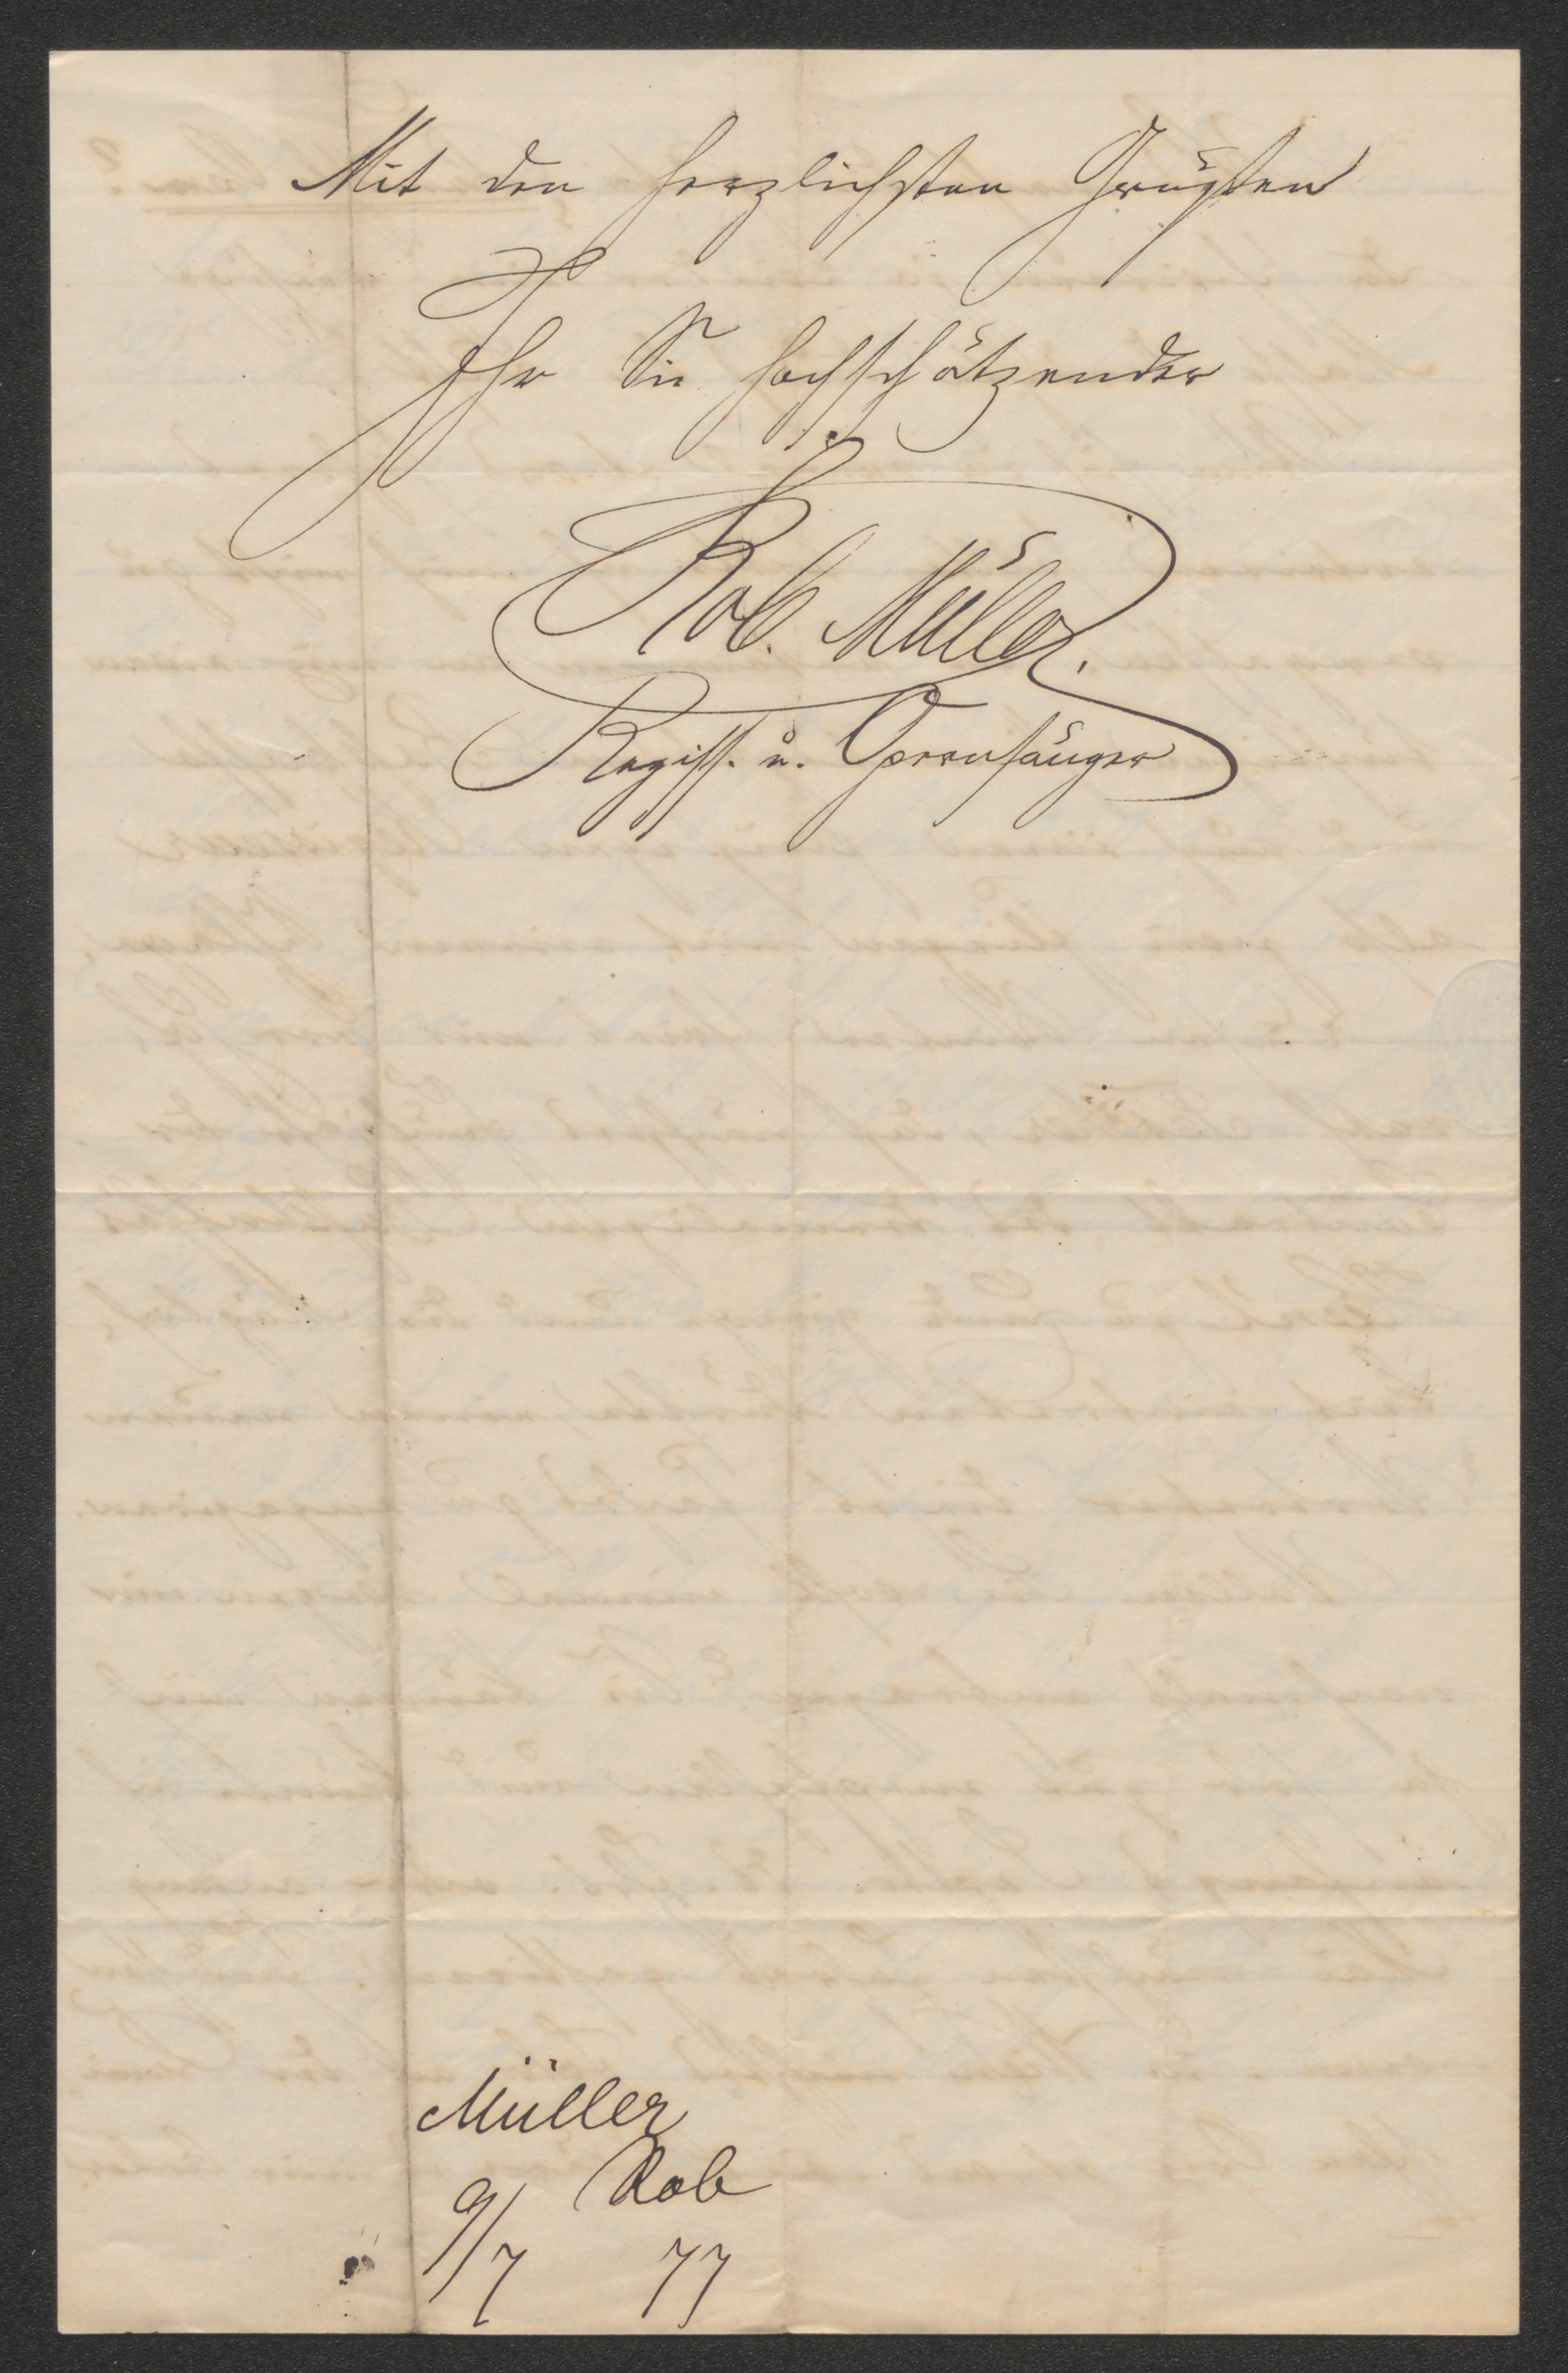 Mit den herzlichsten Grüßen
Ihr Sie hochschätzender
Rob. Müller.
Regiss. u. Opernsänger
Müller
Rob
9/7 77